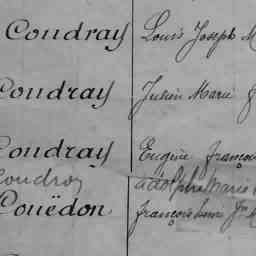 Coudray Louis Joseph M
Coudray Julien Marie
Coudray Eugène françoi
Coudray adolphe Marie
Couëdon françois